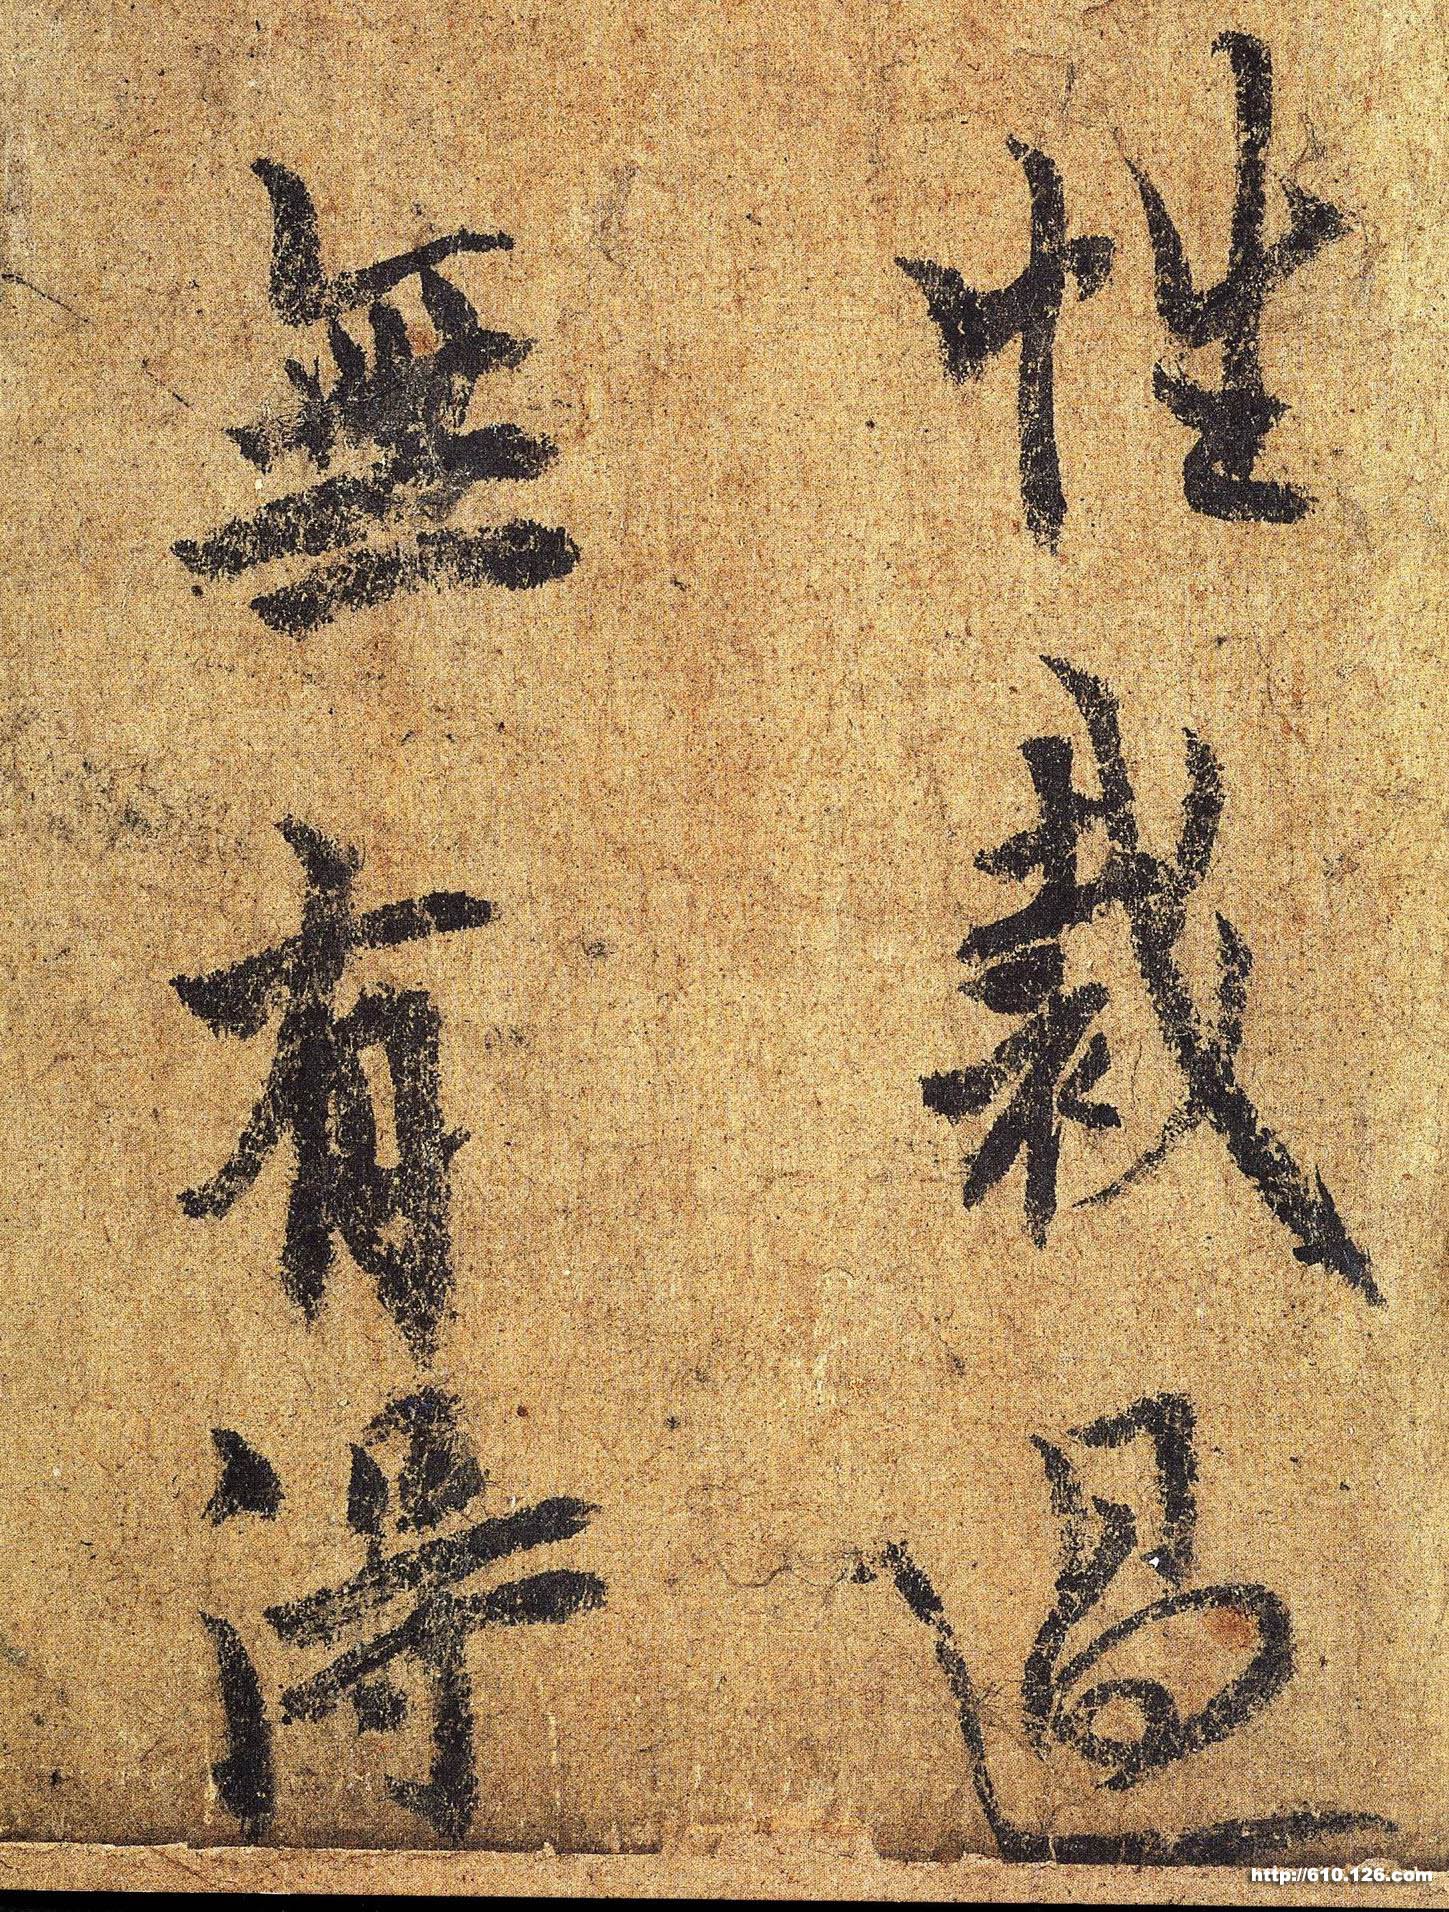 性裁過
無有得
http://610.126.com